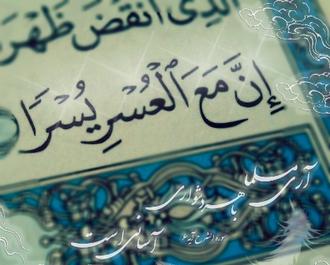 ٱلَّذِىٓ أَنقَضَ ظَهْرَ
إِنَّ مَعَ ٱلْعُسْرِ يُسْرًا
آری مسلما
با هر دشواری
آسانی است
سوره الشرح آیه ۶